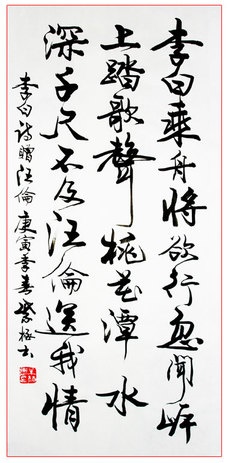 李白乘舟將欲行忽聞岸
上踏歌聲桃花潭水
深千尺不及汪倫送我情
李白詩贈汪倫 庚寅季春